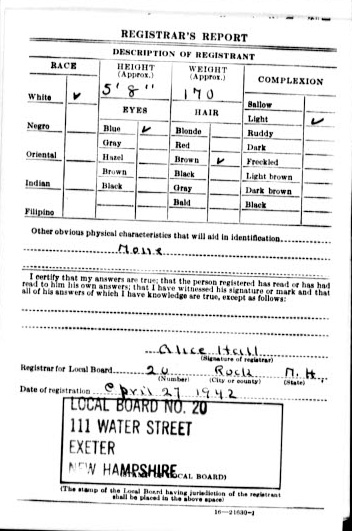 REGISTRAR'S REPORT
DESCRIPTION OF REGISTRANT
RACE
HEIGHT
(Approx.)
WEIGHT
(Approx.)
COMPLEXION
5' 8"
170
White ✓
Sallow
Light ✓
EYES
HAIR
Ruddy
Negro
Blue ✓
Blonde
Dark
Gray
Red
Freckled
Oriental
Hazel
Brown ✓
Light brown
Brown
Black
Dark brown
Indian
Black
Gray
Black
Bald
Filipino
Other obvious physical characteristics that will aid in identification
None
I certify that my answers are true; that the person registered has read or has had
read to him his own answers; that I have witnessed his signature or mark and that
all of his answers of which I have knowledge are true, except as follows:
Alice Hall
(Signature of registrar)
Registrar for Local Board 20 Rock N. H.
(Number) (City or county) (State)
Date of registration April 27 1942
LOCAL BOARD NO. 20
111 WATER STREET
EXETER
NEW HAMPSHIRE
LOCAL BOARD)
(The stamp of the Local Board having jurisdiction of the registrant
shall be placed in the above space)
16—21630-1